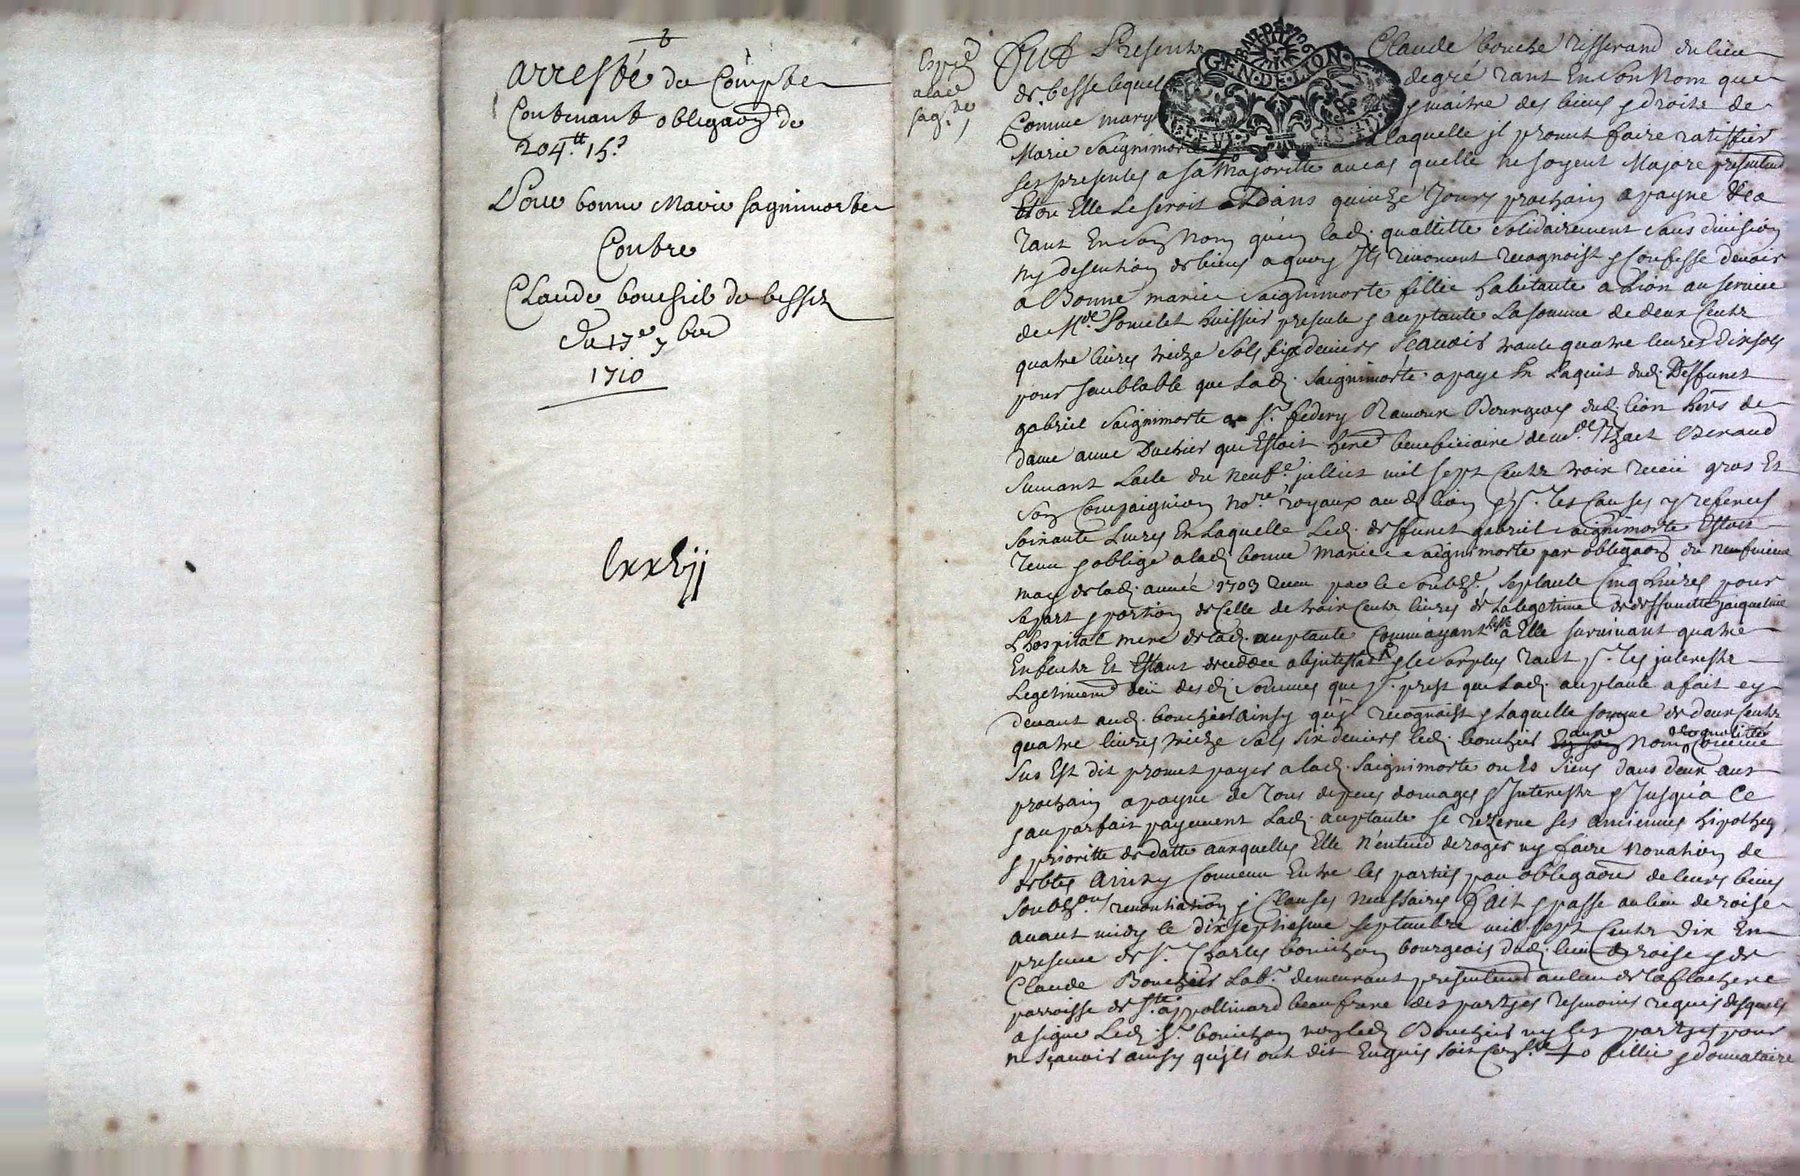 arresté du Compte
Contenant obligaõn de
204.tt 15.s
Pour bonne Marie sagnimorte
Contre
Claude bouchié de besse
Du 17e 7bre
1710
lxxxij
Expié
a lad
sag.te
GEN·DE·LION
Fut Present Claude bouche tisserand du lieu
de besse lequel de gré tant En son Nom que
Comme mary maitre des biens & droits de
Marie Saignimorte laquelle jl promet faire ratiffier
ses presentes a sa Majoritte au cas quelle ne soyent Majore presentemt
Elle Le seroit dans quinze Jours prochain a payne
tant En son Nom qu'en lad. quallitte solidairement sans division
ny discution de biens a quoy Jls renoncent recognoist & Confesse devoir
a Bonne marie Saignimorte fillie habitante a Lion au service
de Mr Poncelet huissier presente & aceptante La somme de deux Centz
quatre livres treize sols six deniers Scauoir trante quatre livres dix sols
pour semblable que Lad. Saignimorte a payé En Laquit dud. Deffunct
gabriel Saignimorte a Sr. federy Ramoux Bourgeois dud. lion hers de
dame anne Duchier qui Estoit here beneficiaire de Beraud
suivant Lacte du neufe juillet mil sept Centz trois receu gros Et
son Compaignion nore royaux aud. lion les Causes y refferees
soixante Livres En Laquelle Led. deffunct gabriel saignimorte Estoit
tenu & obligé a lad. bonne marie saignimorte par obligaõn du neufvieme
may de lad. année 1703 receu par le soubzé. septante Cinq Livres pour
sa part & portion de Celle de trois Centz livres de La legetime de deffuncte jacqueline
Lhospital mere de lad. aceptante Comme ayant a Elle survivant quatre
Enfentz Et Estant decedée abjntestat & le surplus tant pr. les jnterestz
Legetimemt deü des d. sommes que pr. prest que Lad. aceptante a fait cy
devant aud. bouchier ainsy qu'jl recognoist & Laquelle somme de deux Centz
quatre livres treize sols six deniers led. bouchier aux Noms & quallittes Comme
sus Est dit promet payer a lad. Saignimorte ou Es siens dans deux ans
prochain a payne de tous depens domages & Jnterestz & Jusqu'a Ce
& au parfait payement Lad. aceptante se rezerve ses anciennes hipotheq
& prioritte de datte auxquelles Elle N'entend deroger ny faire novation de
debtes Ainsy Convenu Entre les parties par obligaõn de leurs biens
soubzons renontiation & Clauses Nessaires Fait & passe au lieu de roise
avant midy le dix septiesme septembre mil sept Centz dix En
presence de Sr. Charles bouchon bourgeois dud. lieu de roise & de
Claude Bouchier Labr. demeurant presentemt au lieu de la flachere
parroisse de St. appollinard beau frere des partyes tesmoins requis desquels
a signe Led. Sr. bouchon non led. Bouchier ny les partyes pour
ne Scavoir ainsy qu'jls ont dit Enquis soit Conlle fillie & donnataire